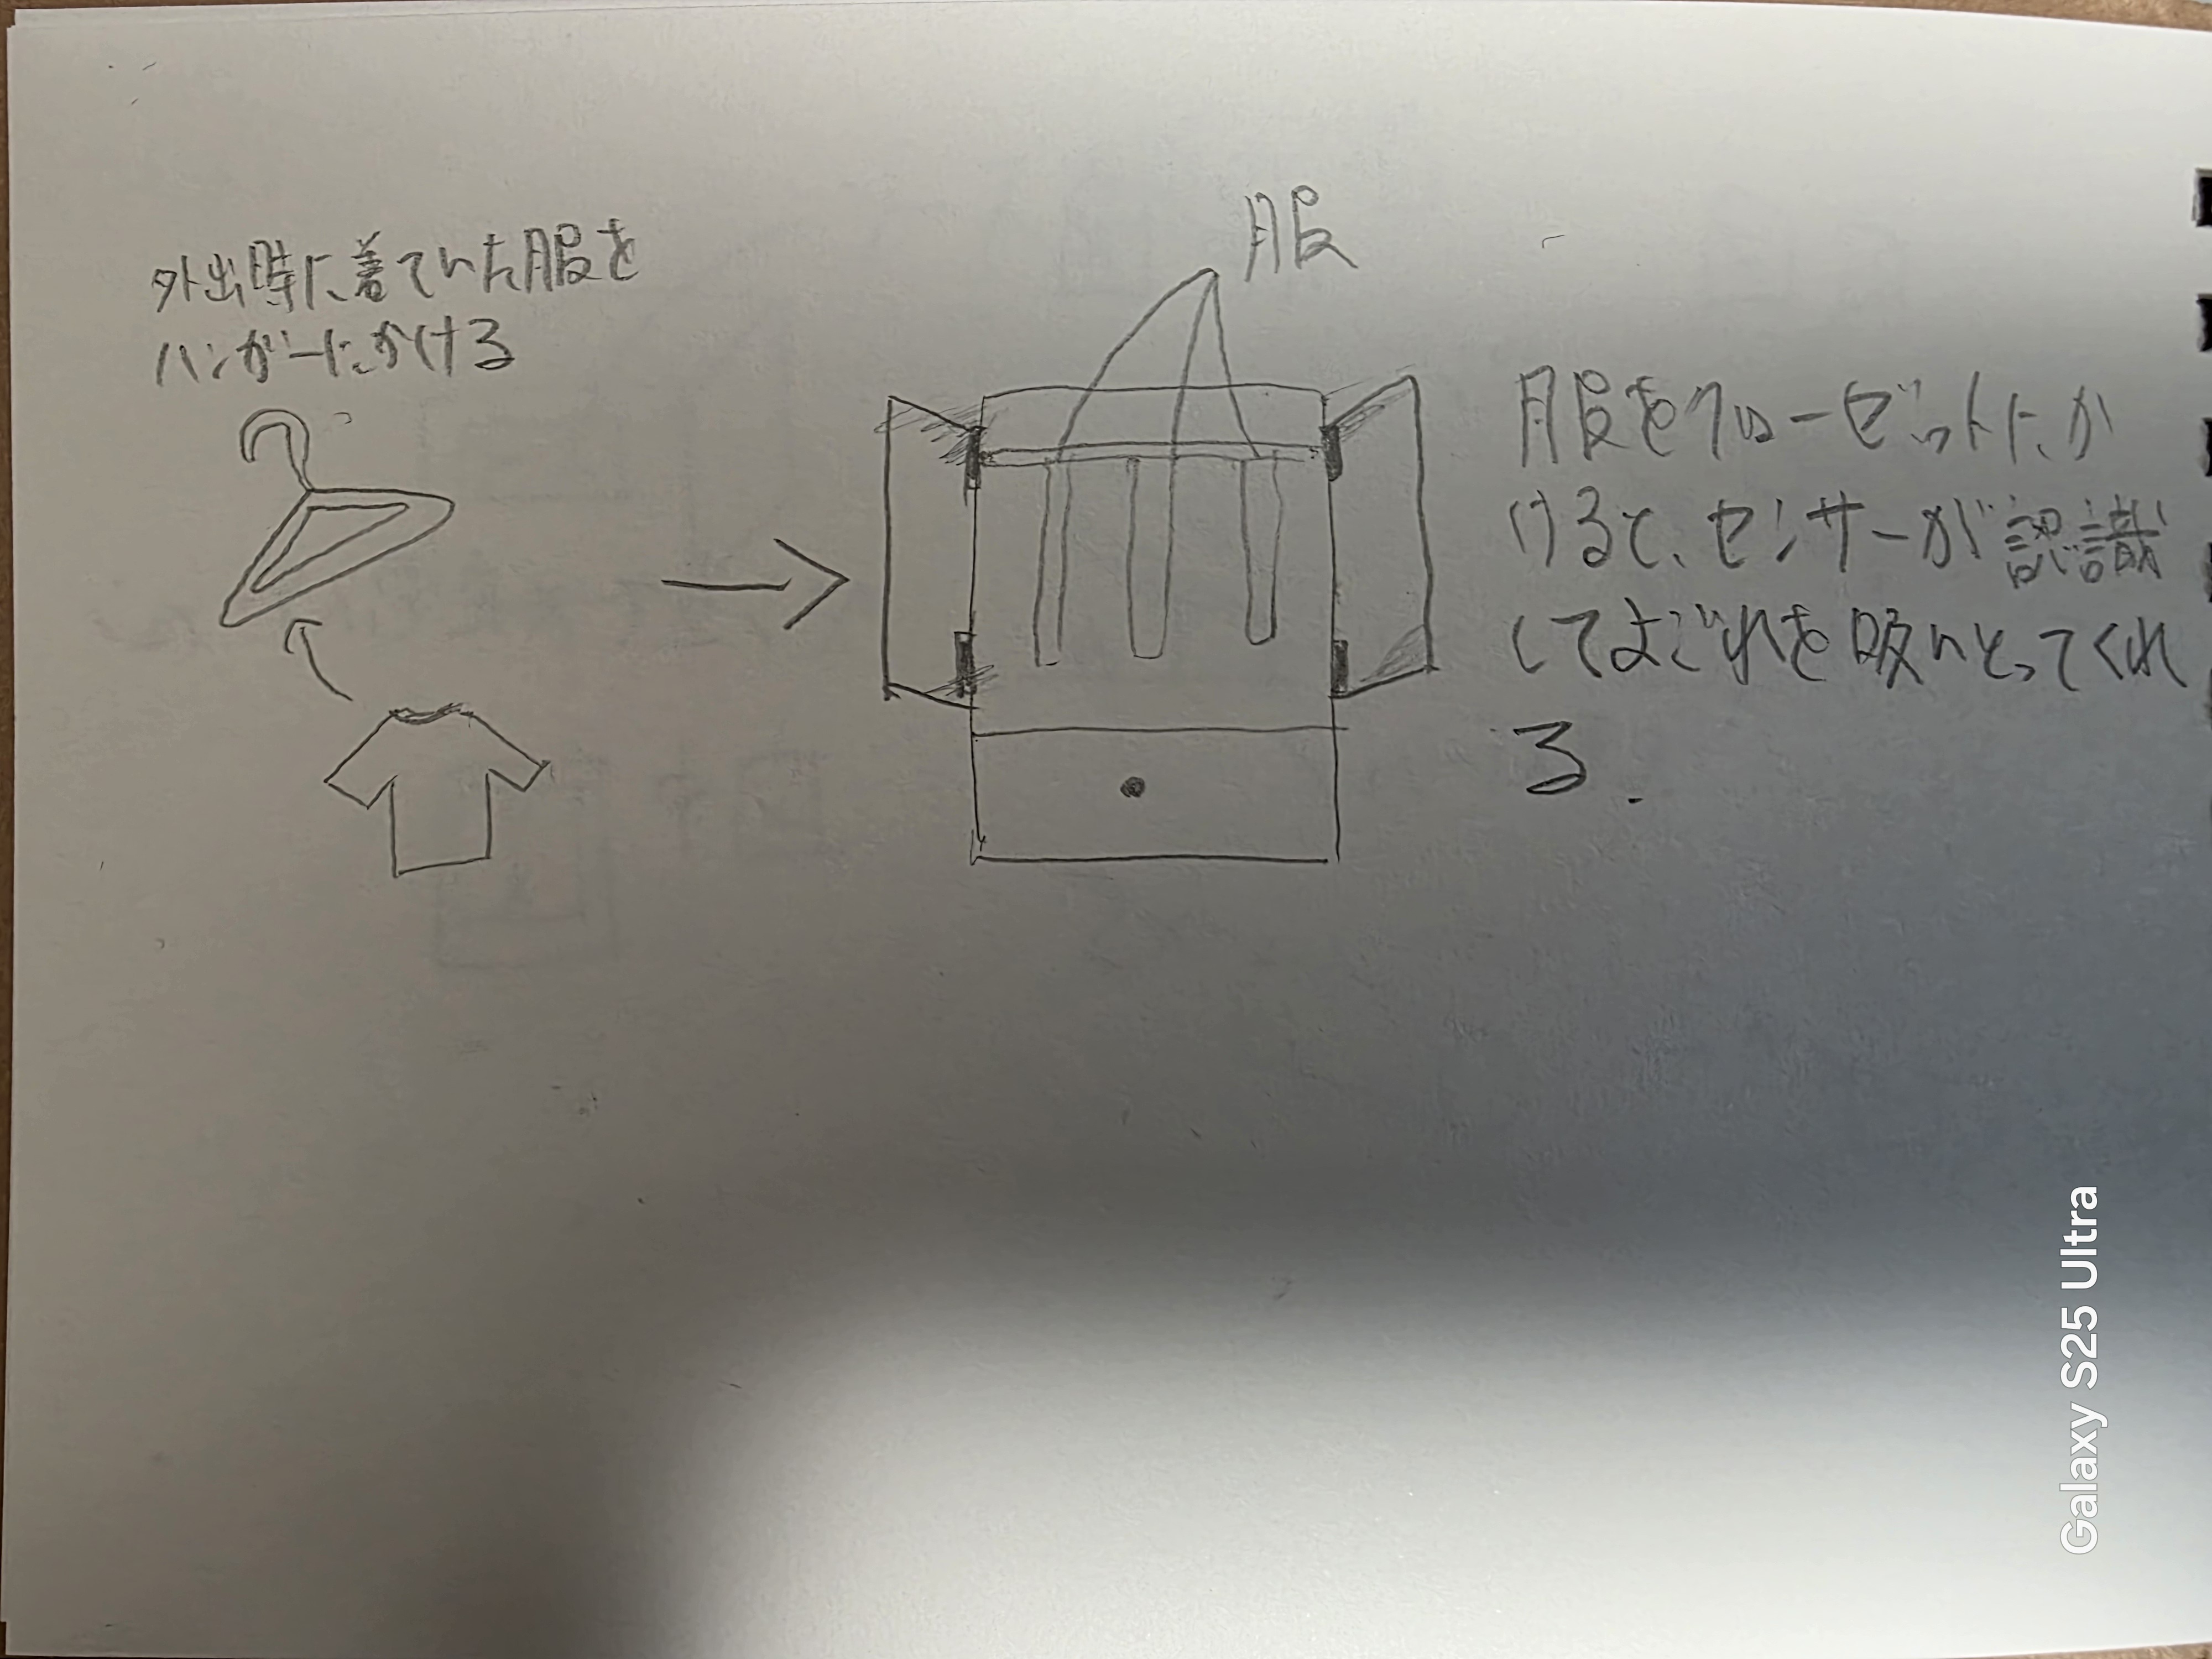 外出時に着ていた服を
ハンガーにかける
服
服をクローゼットにか
けると、センサーが認識
してよごれを吸いとってくれ
る.
Galaxy S25 Ultra